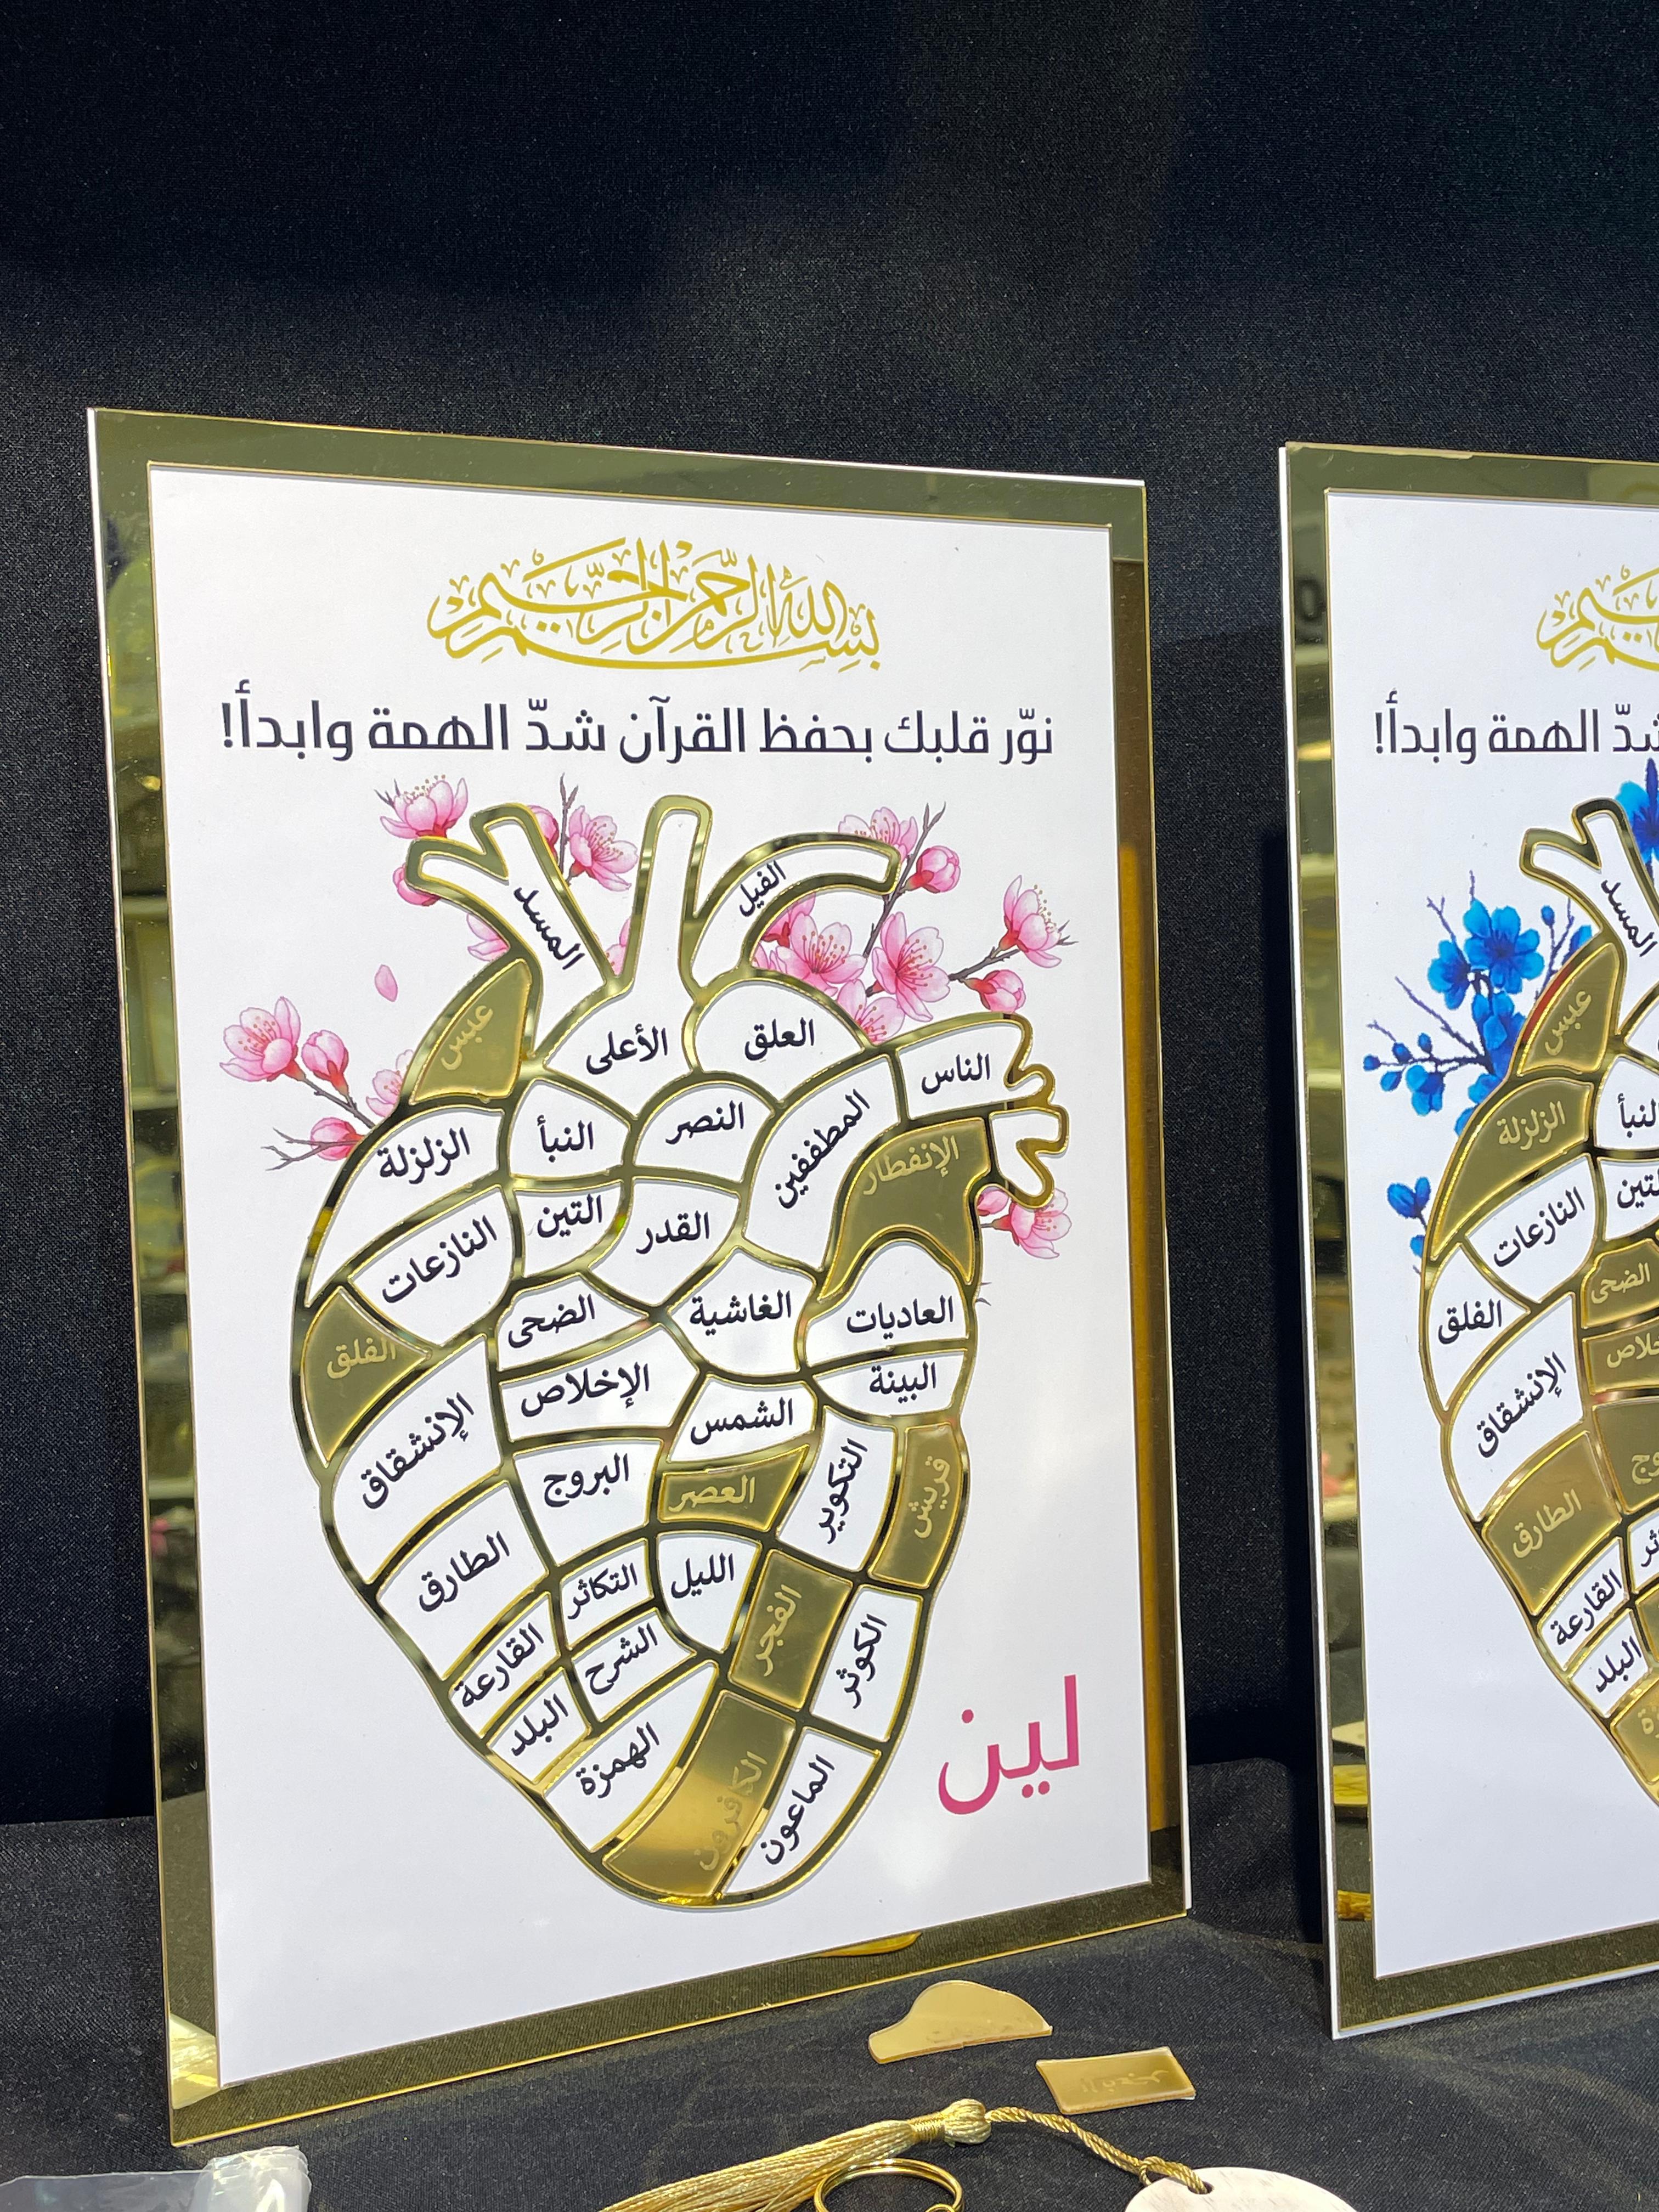 بسم الله الرحمن الرحيم
نوّر قلبك بحفظ القرآن شدّ الهمة وابدأ!
الفيل
المسد
عبس
الأعلى
العلق
الناس
الزلزلة
النبأ
النصر
المطففين
الإنفطار
النازعات
التين
القدر
الفلق
الضحى
الغاشية
العاديات
الإنشقاق
الإخلاص
الشمس
البينة
البروج
العصر
التكوير
قريش
الطارق
التكاثر
الليل
الفجر
الكوثر
القارعة
الشرح
البلد
الهمزة
الكافرون
الماعون
لين
شدّ الهمة وابدأ!
المسد
عبس
الزلزلة
النبأ
النازعات
التين
الفلق
الضحى
الإنشقاق
الطارق
القارعة
البلد